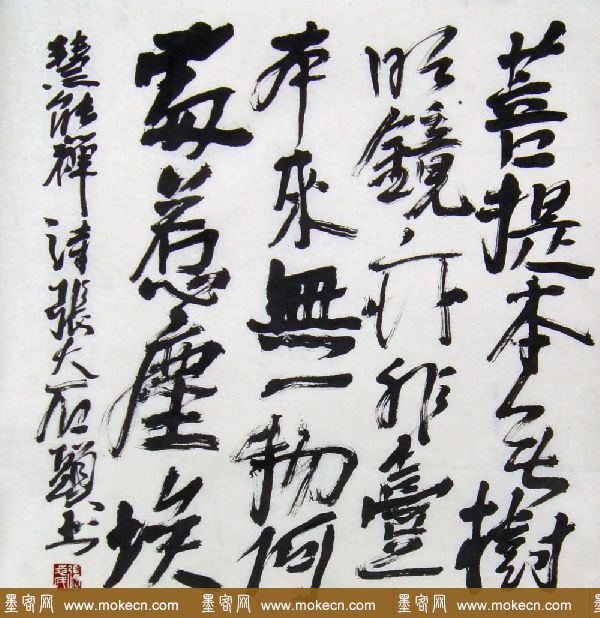 菩提本无樹
明鏡亦非臺
本來無一物何
處惹塵埃
慧能禪詩張大石頭書
墨客网 www.mokecn.com 墨客网 www.mokecn.com 墨客网 www.mokecn.com